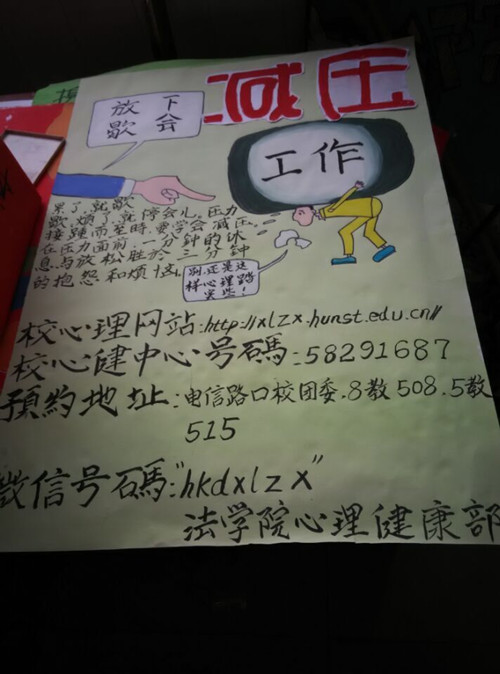 减压
放下
歇会
工作
累了就歇
歇,烦了就停会儿,压力
接踵而至時,要学会减压,
在压力面前,一分钟的休
息与放松胜於三分钟
的抱怨和烦恼。
别,还是这
样心理踏
实些!
校心理网站:http://xlzx.hunst.edu.cn//
校心健中心号碼:58291687
預約地址:电信路口校团委.8教508.5教
515
微信号碼:"hkdxlzx"
法学院心理健康部